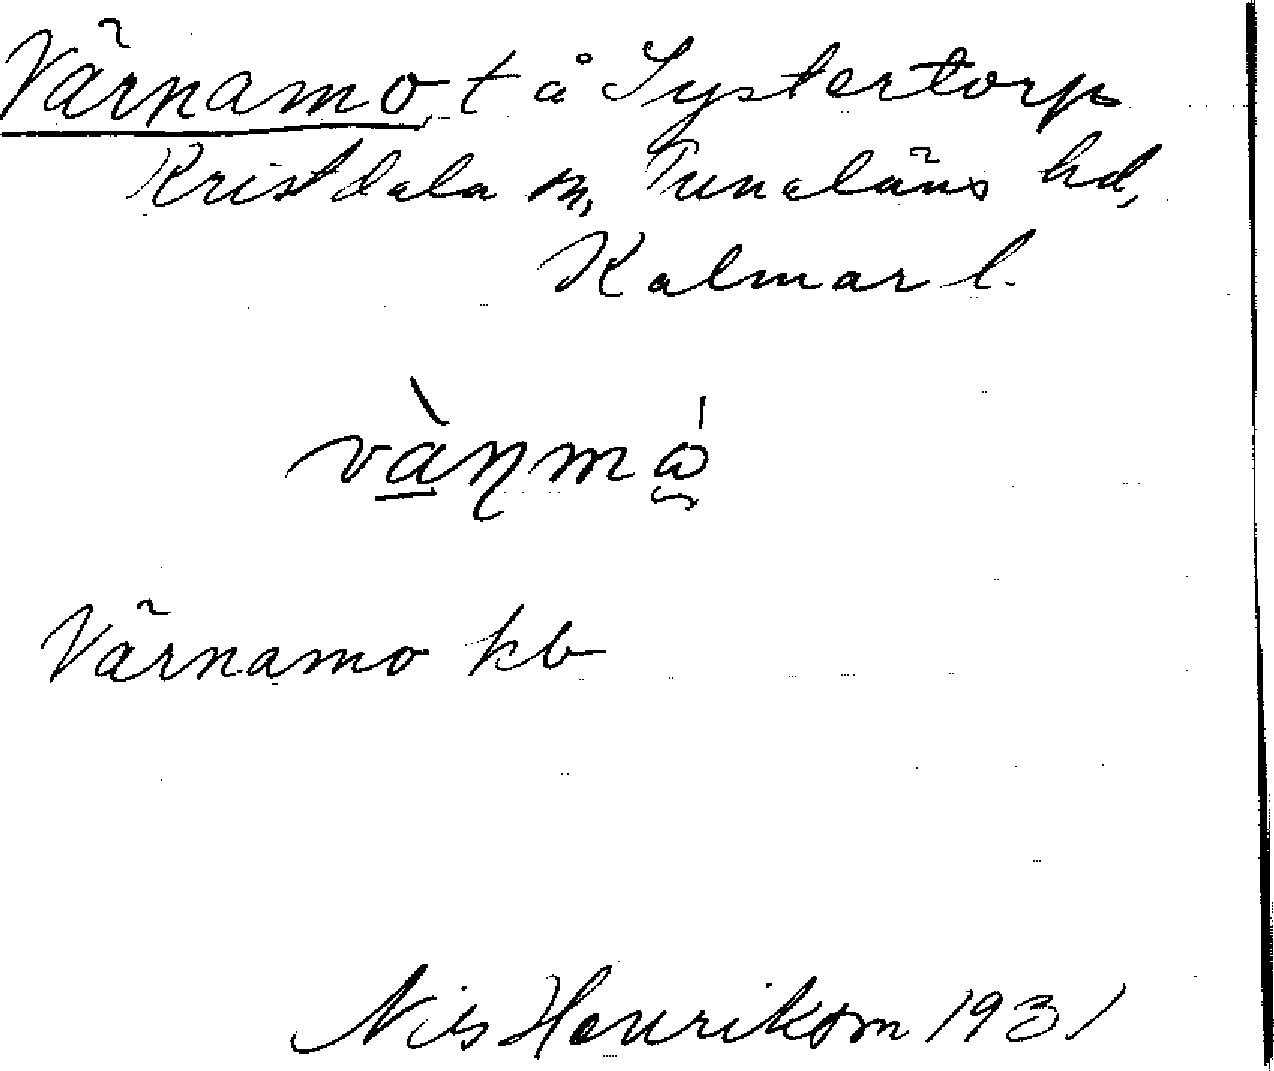 Värnamo t å Systertorp
Kristdala sn, Tunaläns hd,
Kalmar l.
Värnamo kb
Nils Henrikson 1931